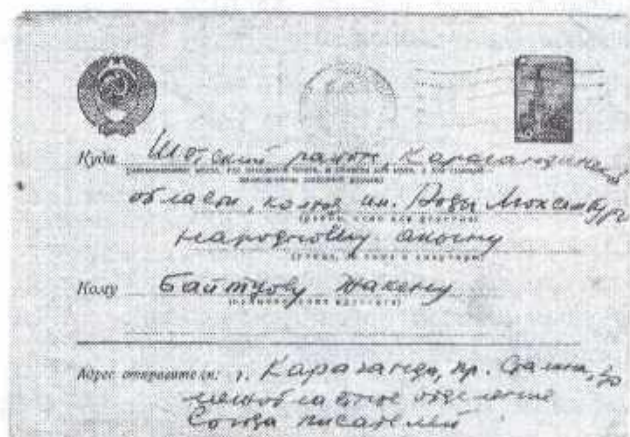 Куда Шетский район, Карагандинской
области, колхоз им. Розы Люксембург
народному акыну
Кому Байтуову Жакену
Адрес отправителя: г. Караганда, пр. Сталина,
межобластное отделение
Союза писателей